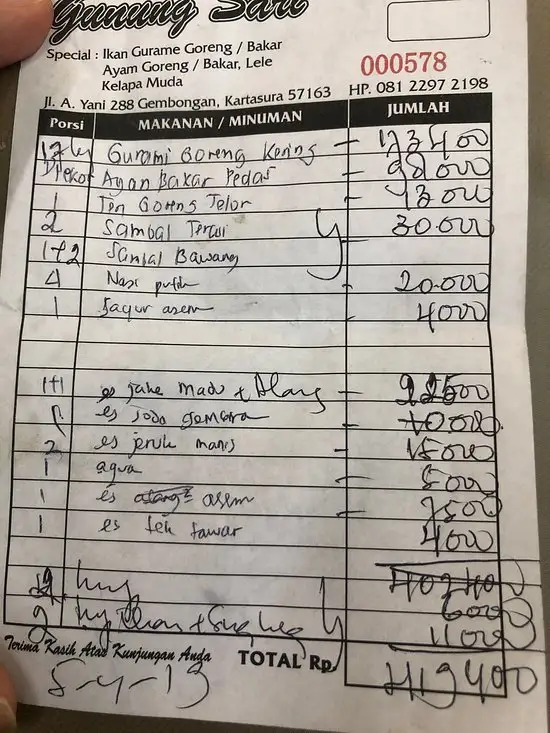 Gunung Sari
Special : Ikan Gurame Goreng / Bakar
Ayam Goreng / Bakar, Lele
Kelapa Muda
000578
Jl. A. Yani 288 Gembongan, Kartasura 57163 HP. 081 2297 2198
Porsi MAKANAN / MINUMAN JUMLAH
Gurami Goreng Kering - 173400
Ayam Bakar Pedas - 92000
1 Goreng Telor - 13000
2 Sambal Terasi 30.000
1+2 Sambal Bawang
4 Nasi putih - 20.000
1 Sayur asem - 4000
1+1 es jahe madu + Alang - 22500
es soda gembira - 10.000
2 es jeruk manis - 15000
1 aqua - 5000
1 es asem - 7500
1 es teh tawar 4000
402400
6000
2 11000
Terima Kasih Atas Kunjungan Anda TOTAL Rp 419400